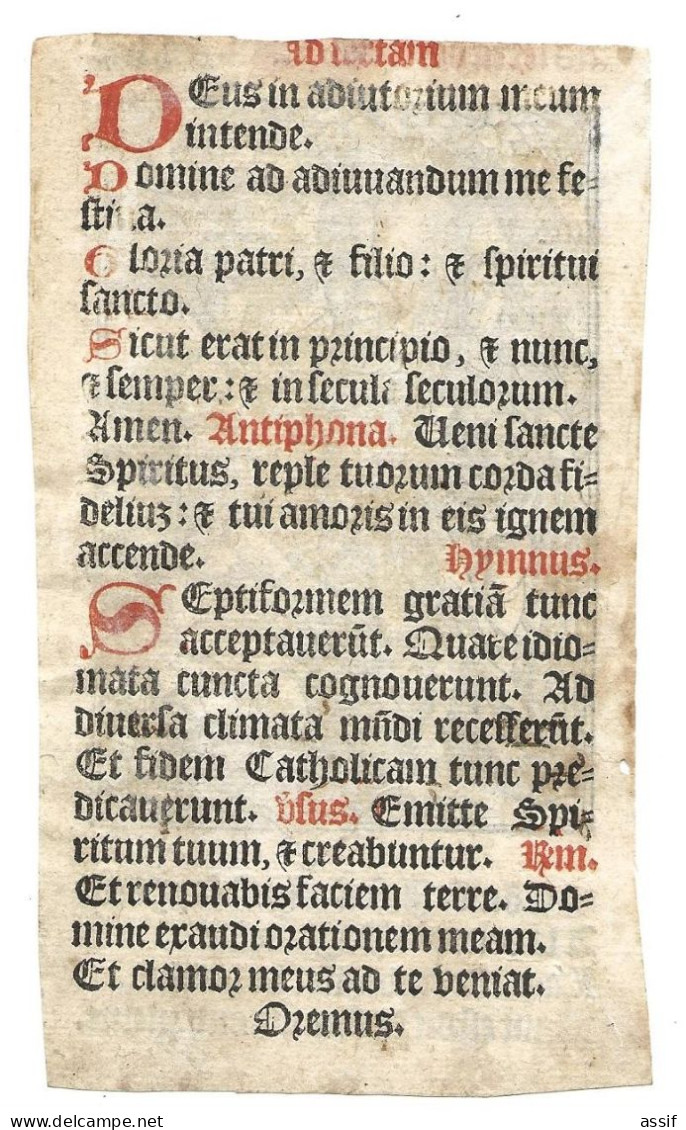 Ad sextam
DEus in adiutorium meum
intende.
Domine ad adiuuandum me fe-
stina.
Gloria patri, & filio: & spiritui
sancto.
Sicut erat in principio, & nunc,
& semper: & in secula seculorum.
Amen. Antiphona. Ueni sancte
Spiritus, reple tuorum corda fi-
deliuz: & tui amoris in eis ignem
accende. Hymnus.
SEptiformem gratiã tunc
acceptauerũt. Quare idio-
mata cuncta cognouerunt. Ad
diuersa climata mũdi recesserũt.
Et fidem Catholicam tunc pre-
dicauerunt. v̄sus. Emitte Spi-
ritum tuum, & creabuntur. Rm.
Et renouabis faciem terre. Do-
mine exaudi orationem meam.
Et clamor meus ad te veniat.
Oremus.
assif